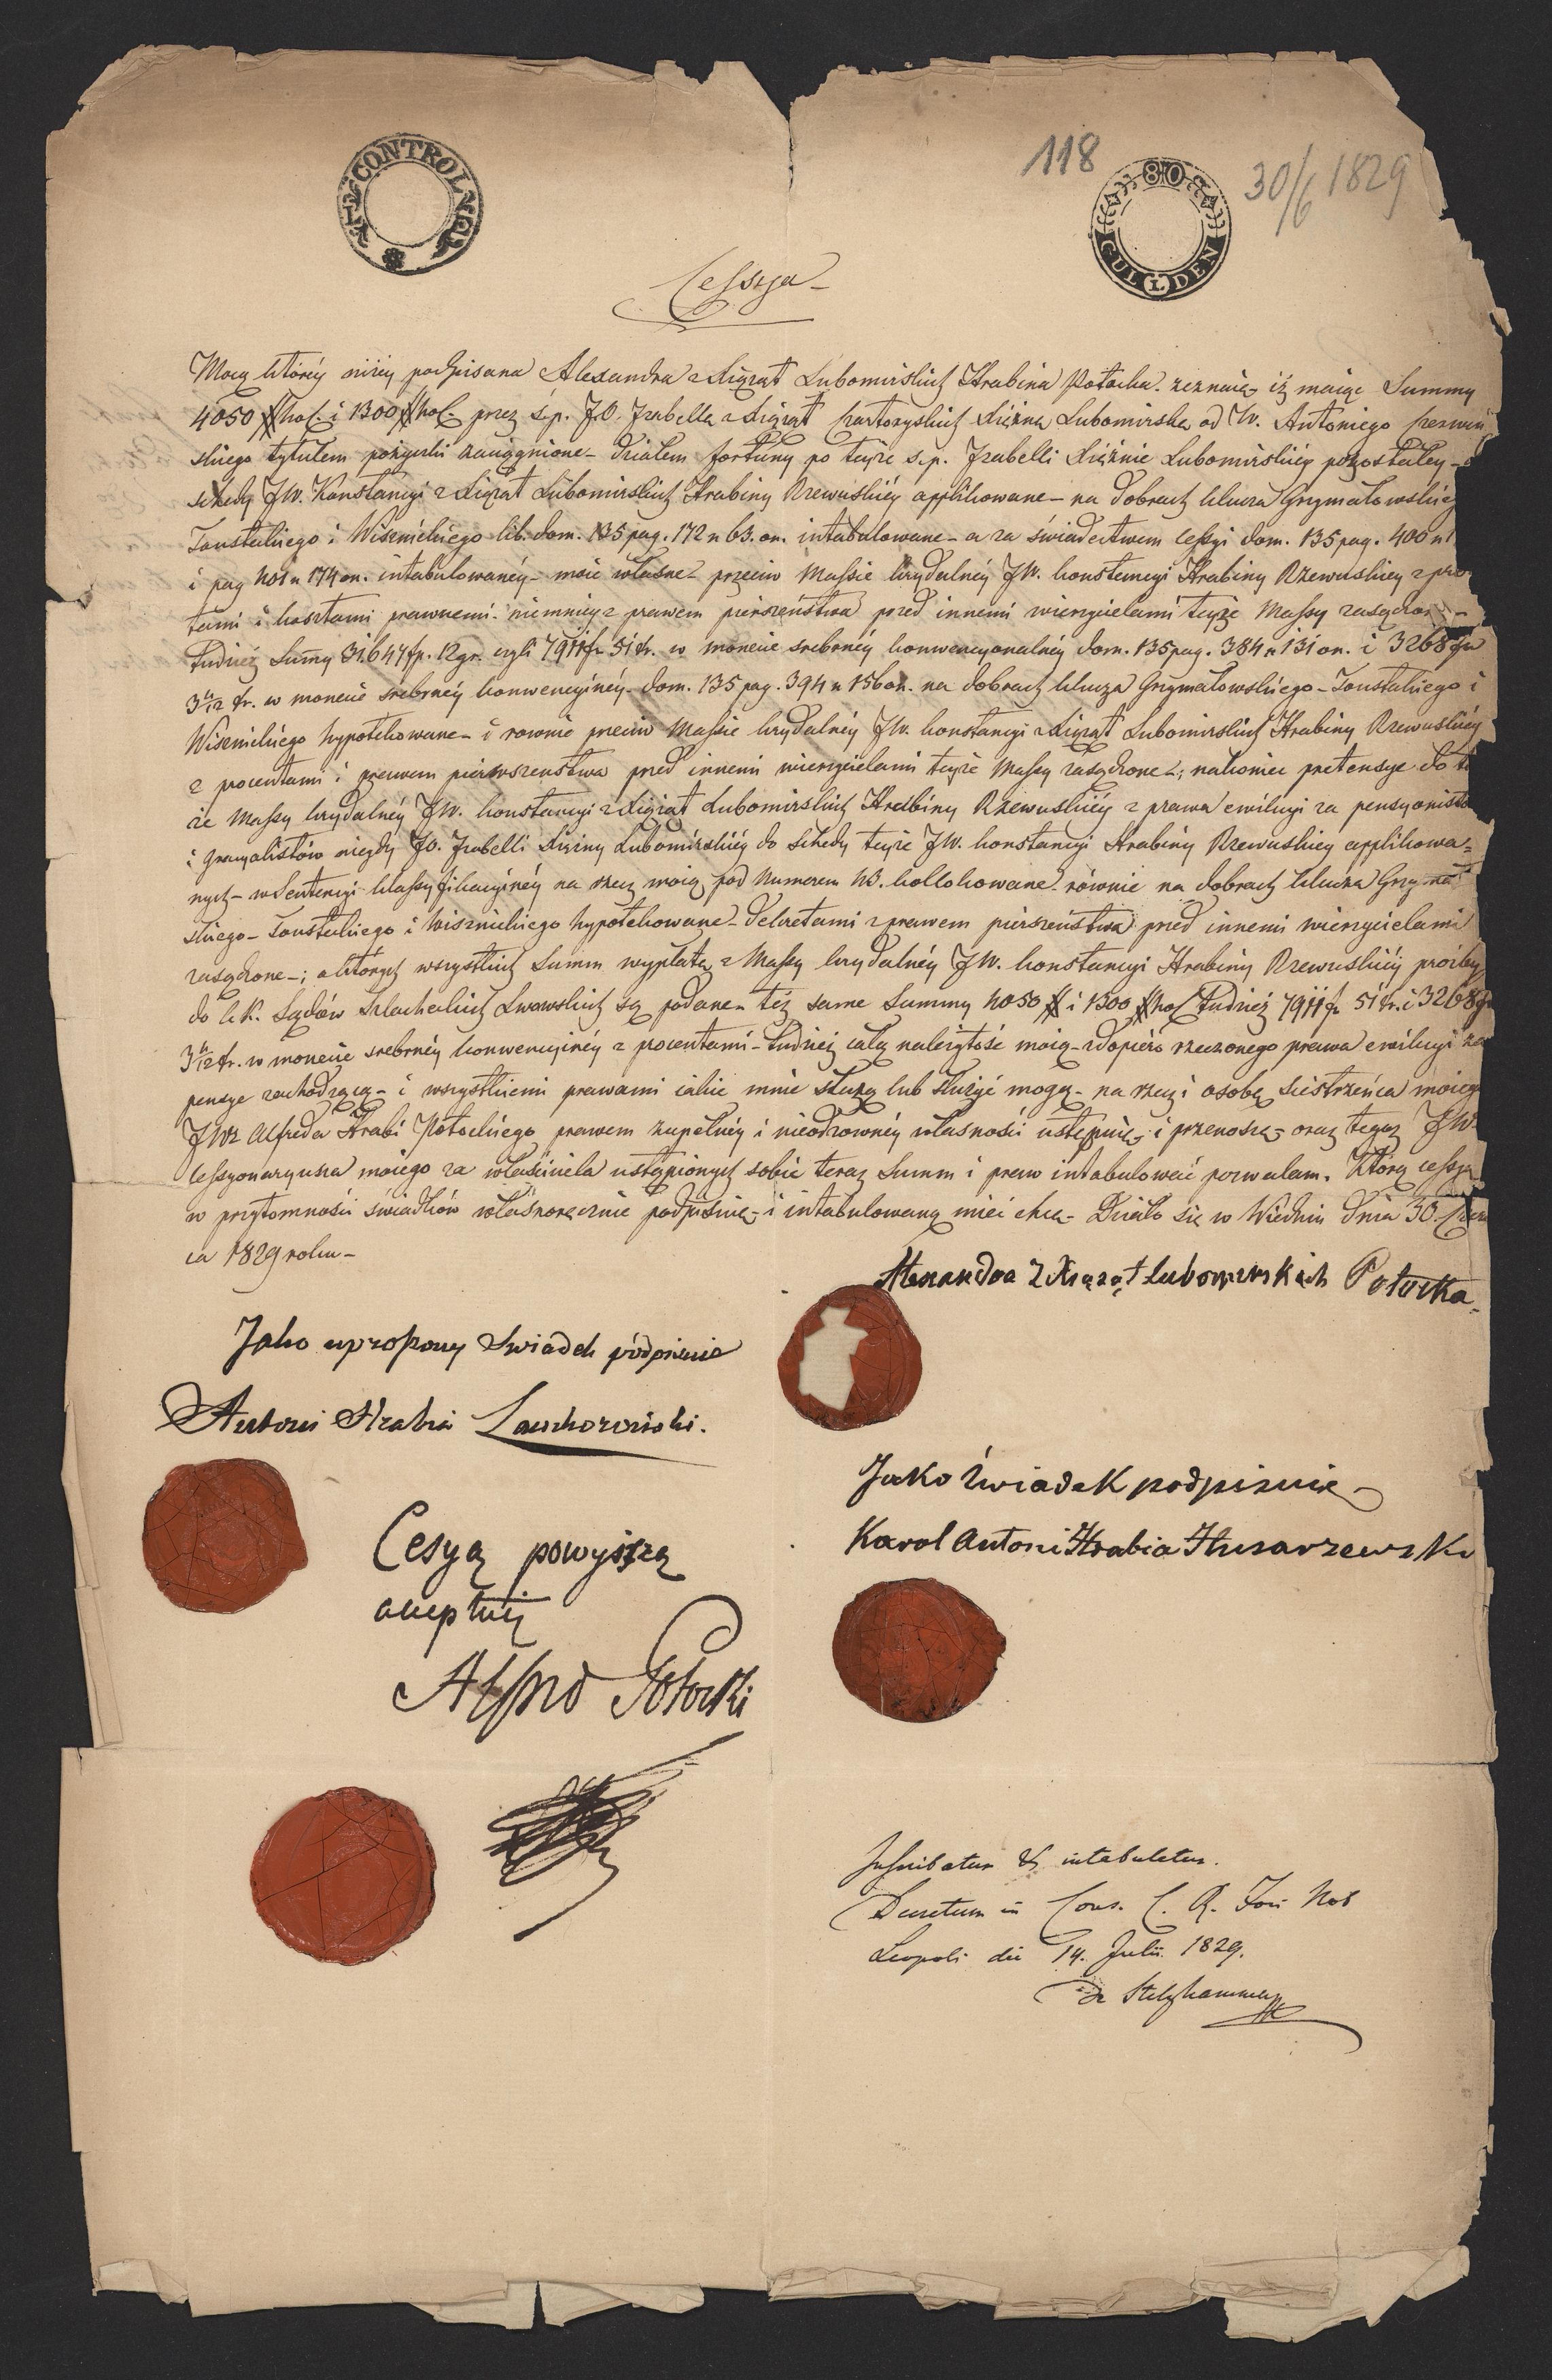 CONTROL
118
30/6 1829
80
GULDEN
Cessya
Mocą którey niżey podpisana Alexandra z Xiążąt Lubomirskich Hrabina Potocka. zeznaię iż maiąc Summy
4050 # hol. i 1300 # hol. przez ś.p. J.O. Izabellę z Xiążąt Czartoryskich Xiężnę Lubomirską od W. Antoniego
skiego tytułem pożyczki zaciągnione – działem fortuny po teyże s.p. Izabelli Xiężnie Lubomirskiéy pozostałey –
schedy JW. Konstancyi z Xiążąt Lubomirskich Hrabiny Rzewuskiéy applikowane – na dobrach klucza Grzymałowskieg
Toustskiego i Wisenickiego lib. dom. 135 pag. 172 n 63. on. intabulowane – a za świadectwem Cessyi dom. 135 pag. 400 n
i pag 401 n 174 on. intabulowanéy – moie własne – przeciw Massie krydalnéy JW. Konstancyi Hrabiny Rzewuskiey z pro
tami i kosztami prawnemi. niemniey z prawem pierszeństwa przed innemi wierzycielami teyże Massy zasądzone –
tudzież Summy 31.647 fp. 12 gr. czyli 7911 fr 51 kr. w monecie srebrnéy konwencyonalnéy dom. 135 pag. 384 n 131 on. i 3268 fr
3 kr. w monecie srebrnéy konwencyinéy. dom. 135 pag. 394 n 156 on. na dobrach klucza Grzymałowskiego – Toustskiego i
Wisenickiego hypotekowane – i rownie przeciw Massie krydalnéy JW. Konstancyi z Xiążąt Lubomirskich Hrabiny Rzewuskiéy
z procentami i prawem pierwszeństwa przed innemi wierzycielami teyże Massy zasądzone –; nakoniec pretensye do te
że Massy krydalnéy JW. Konstancyi z Xiążąt Lubomirskich Hrabiny Rzewuskiéy z prawa ewikcyi za pensyonistów
i Gracyalistów niegdy JO. Izabelli Xiężny Lubomirskiéy do schedy teyże JW. Konstancyi Hrabiny Rzewuskiey applikowa=
nych – w Sentencyi klassyfikacyinéy na rzecz moią pod Numerem 43. kollokowane. równie na dobrach klucza Grzyma
skiego – Toustskiego i Wisznickiego hypotekowane – dekretami z prawem pierszeństwa przed innemi wierzycielami
zasądzone –; a których wszystkich Summ wypłatę z Massy krydalnéy JW. Konstancyi Hrabiny Rzewuskiéy prośby
do C.K. Sądów Szlacheckich Lwowskich są podane – też same Summy 4050 # i 1300 # hol tudzież 7911 fr 51 kr. i 3268 fr
3 kr. w monecie srebrnéy konwencyinéy z procentami – tudzież całą należytość moią – z dopiéro rzeczonego prawa ewikcyi za
pensye zachodzącą – i wszystkiemi prawami iakie mnie służą lub służyć mogą – na rzecz i osobę Siestrzeńca moiego
JW. Alfreda Hrabi Potockiego prawem zupełnéy i nieodzownéy własności ustępuię – i przenoszę – oraz tegoż JW.
Cessyonaryusza moiego za właściciela ustąpionych sobie teraz Summ i praw intabulować pozwalam. Którą cessyą
w przytomności świadków własnoręcznie podpisuię – i intabulowaną mieć chcę – Działo się w Wiedniu dnia 30. Czerw
ca 1829 roku –
Alexandra z Xiążąt Lubomirskich Potocka
Jako uproszony Swiadek podpisuie
Antoni Hrabia Lanckoroński.
Jako świadek podpisuie
Karol Antoni Hrabia Husarzewski
Cesyą powyższą
akceptuię
Alfred Potocki
Inscribatur & intabuletur.
Decretum in Cons. C. R. Fori Nob
Leopoli die 14. Julii. 1829.
De Stelzhammer